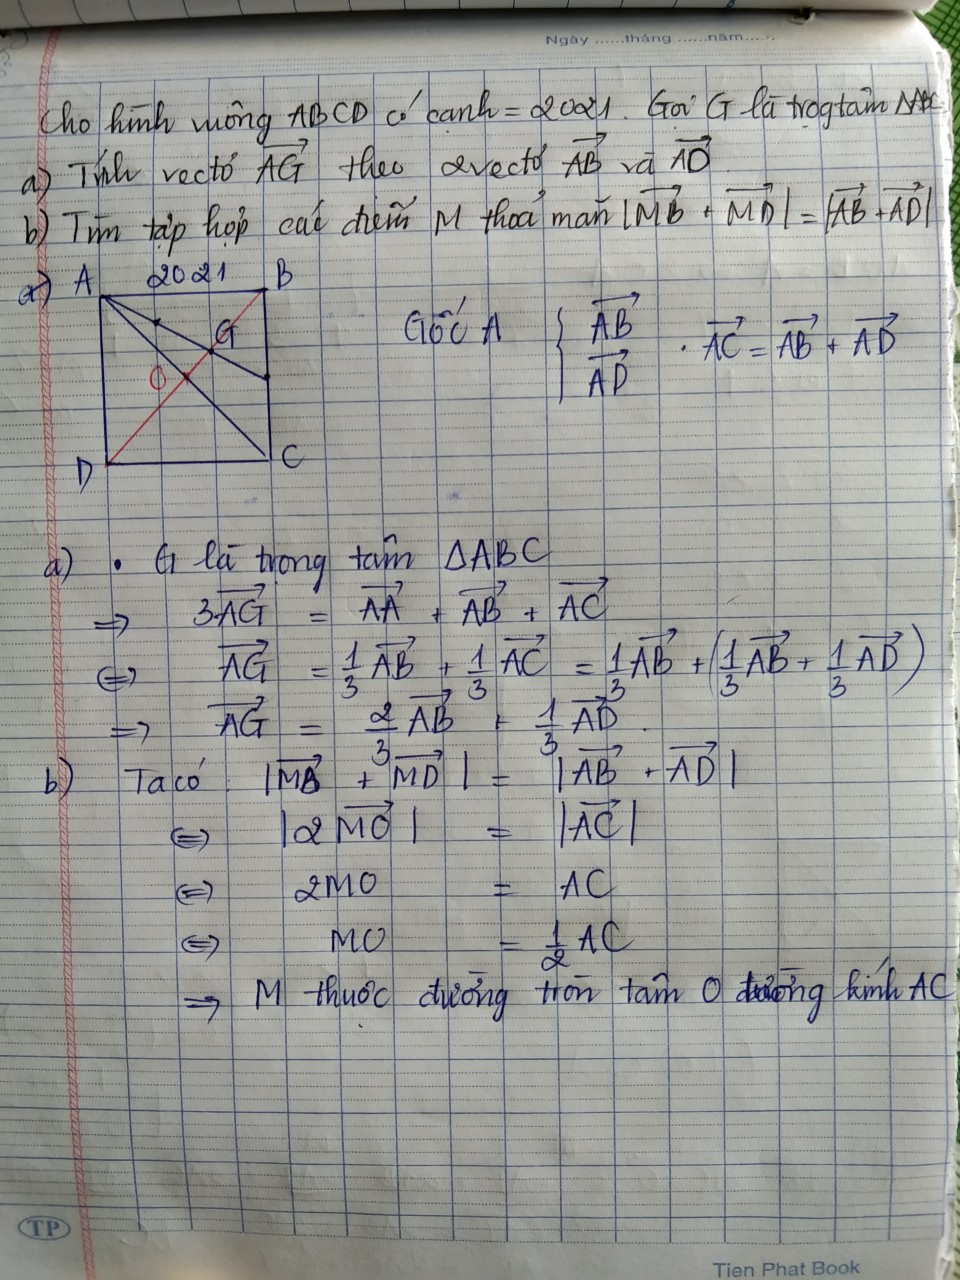 Ngày ......tháng ......năm......
Cho hình vuông ABCD có cạnh = 2021. Gọi G là trọgtâm ΔABC
a) Tính vectơ \overrightarrow{AG} theo 2vectơ \overrightarrow{AB} và \overrightarrow{AD}
b) Tìm tập hợp các điểm M thoả mãn |\overrightarrow{MB} + \overrightarrow{MD}| = |\overrightarrow{AB} + \overrightarrow{AD}|
a) A 2021 B
G
O
D C
Gốc A { \overrightarrow{AB} \overrightarrow{AD} . \overrightarrow{AC} = \overrightarrow{AB} + \overrightarrow{AD}
a) • G là trọng tâm ΔABC
⇒ 3\overrightarrow{AG} = \overrightarrow{AA} + \overrightarrow{AB} + \overrightarrow{AC}
⇔ \overrightarrow{AG} = 1/3 \overrightarrow{AB} + 1/3 \overrightarrow{AC} = 1/3 \overrightarrow{AB} + (1/3 \overrightarrow{AB} + 1/3 \overrightarrow{AD})
⇒ \overrightarrow{AG} = 2/3 \overrightarrow{AB} + 1/3 \overrightarrow{AD}.
b) Ta có : |\overrightarrow{MB} + \overrightarrow{MD}| = |\overrightarrow{AB} + \overrightarrow{AD}|
⇔ |2\overrightarrow{MO}| = |\overrightarrow{AC}|
⇔ 2MO = AC
⇔ MO = 1/2 AC
⇒ M thuộc đường tròn tâm O đường kính AC
TP
Tien Phat Book